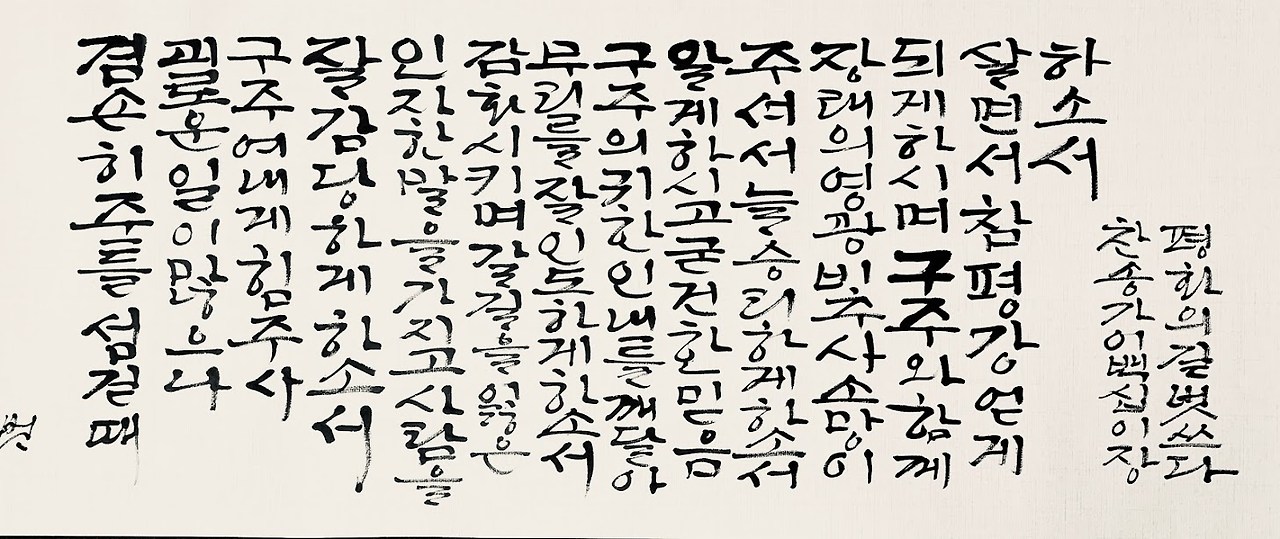 겸손히 주를 섬길 때
괴로운 일이 많으나
구주여 내게 힘 주사
잘 감당하게 하소서
인자한 말을 가지고 사람을
감화시키며 갈 길을 잃은
무리를 잘 인도하게 하소서
구주의 귀한 인내를 깨달아
알게 하시고 굳건한 믿음
주셔서 늘 승리하게 하소서
장래의 영광 비추사 소망이
되게 하시며 구주와 함께
살면서 참 평강 얻게
하소서
찬송가 이백십이장
평화의길벗 쓰다